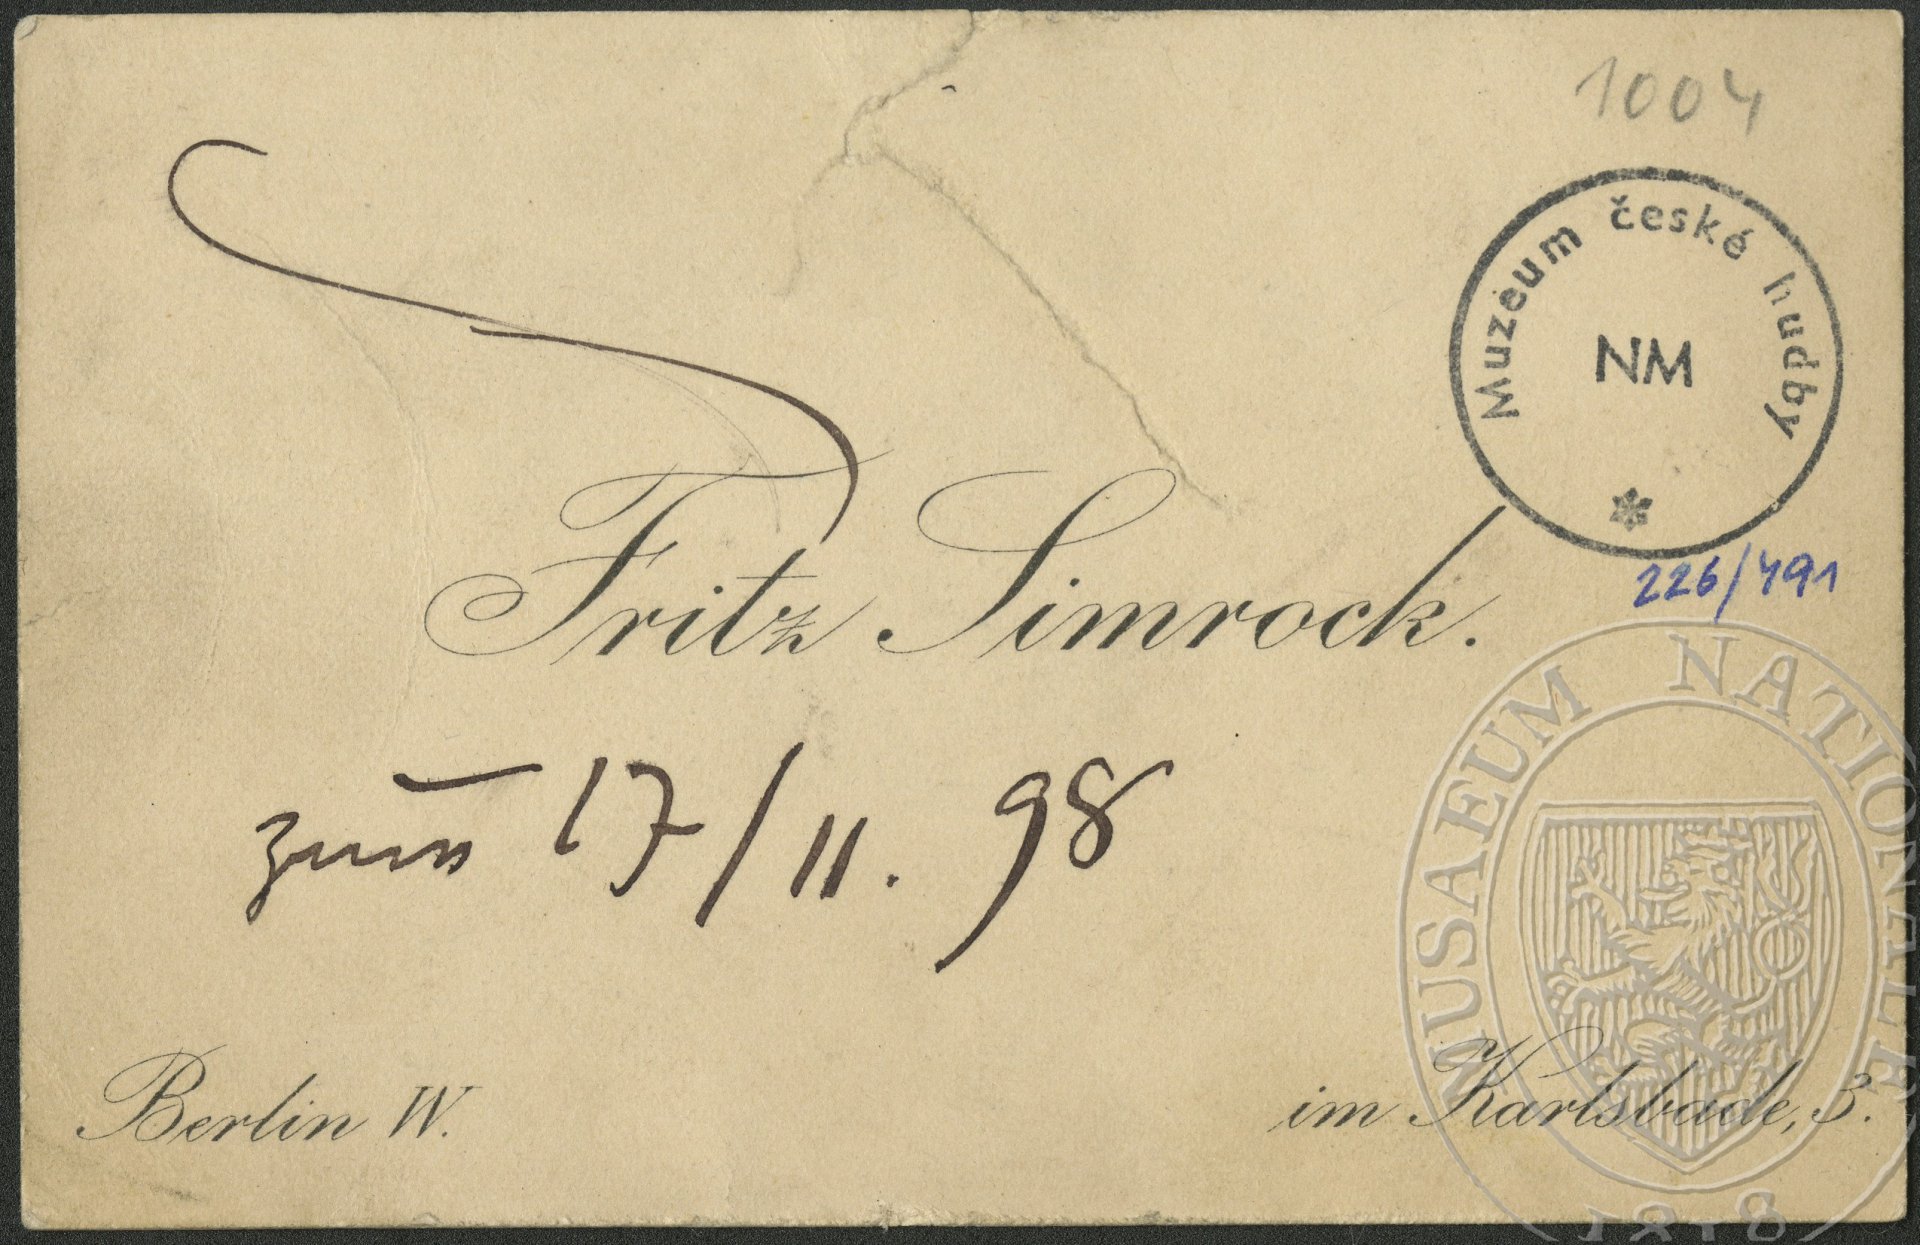 1004
Muzeum české hudby
NM
Fritz Simrock.
226/491
zum 17/II. 98
MUSAEUM NATIONALE
1818
Berlin W.
im Karlsbade, 3.